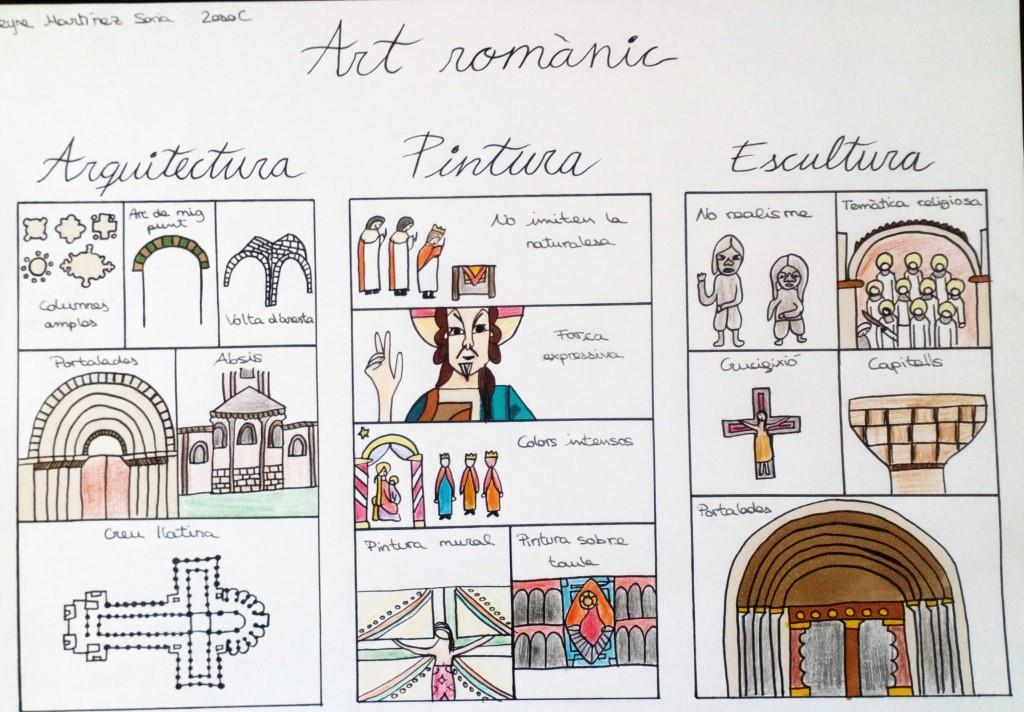 Martínez Soria
Art romànic
Arquitectura
Columnes
amples
Arc de mig
punt
Volta d'aresta
Portalades
Absis
Creu llatina
Pintura
No imiten la
naturalesa
Força
expressiva
Colors intensos
Pintura mural
Pintura sobre
taula
Escultura
No realisme
Temàtica religiosa
Crucifixió
Capitells
Portalades